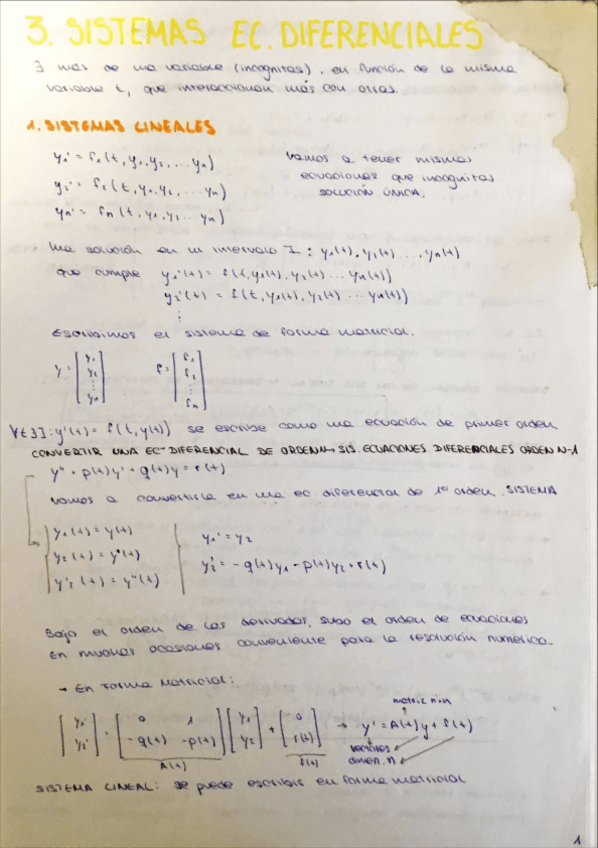 3. SISTEMAS EC. DIFERENCIALES
∃ más de una variable (incógnitas), en función de la misma
variable t, que interaccionan más con otras.
1. SISTEMAS LINEALES
y₁' = f₁(t, y₁, y₂, ... yn)
y₂' = f₂(t, y₁, y₂, ... yn)
yn' = fn(t, y₁, y₂ ... yn)
Vamos a tener mismas
ecuaciones que incógnitas
SOLUCIÓN ÚNICA.
una solución en un intervalo I : y₁(t), y₂(t) ..., yn(t)
que cumple y₁'(t) = f(t, y₁(t), y₂(t) ... yn(t))
y₂'(t) = f(t, y₁(t), y₂(t) ... yn(t))
⋮
Escribimos el sistema de forma matricial.
y = [y₁ y₂ ⋮ yn] f = [f₁ f₂ ⋮ fn]
y'(t) = f(t, y(t)) se escribe como una ecuación de primer orden
CONVERTIR UNA EC DIFERENCIAL DE ORDEN n → SIS. ECUACIONES DIFERENCIALES ORDEN N-1
y'' + p(t)y' + q(t)y = f(t)
Vamos a convertirla en una ec. diferencial de 1º orden. SISTEMA
y₁(t) = y(t)
y₂(t) = y'(t)
y₂'(t) = y''(t)
y₁' = y₂
y₂' = -q(t)y₁ - p(t)y₂ + f(t)
Bajo el orden de las derivadas, subo el orden de ecuaciones
En muchas ocasiones conveniente para la resolución numérica.
→ En forma Matricial:
matriz n·n
[y₁' y₂'] = [0 1 -q(t) -p(t)] [y₁ y₂] + [0 f(t)] → y' = A(t)y + f(t)
A(t) f(t) vectores
dimen. n
SISTEMA LINEAL: se puede escribir en forma matricial
1